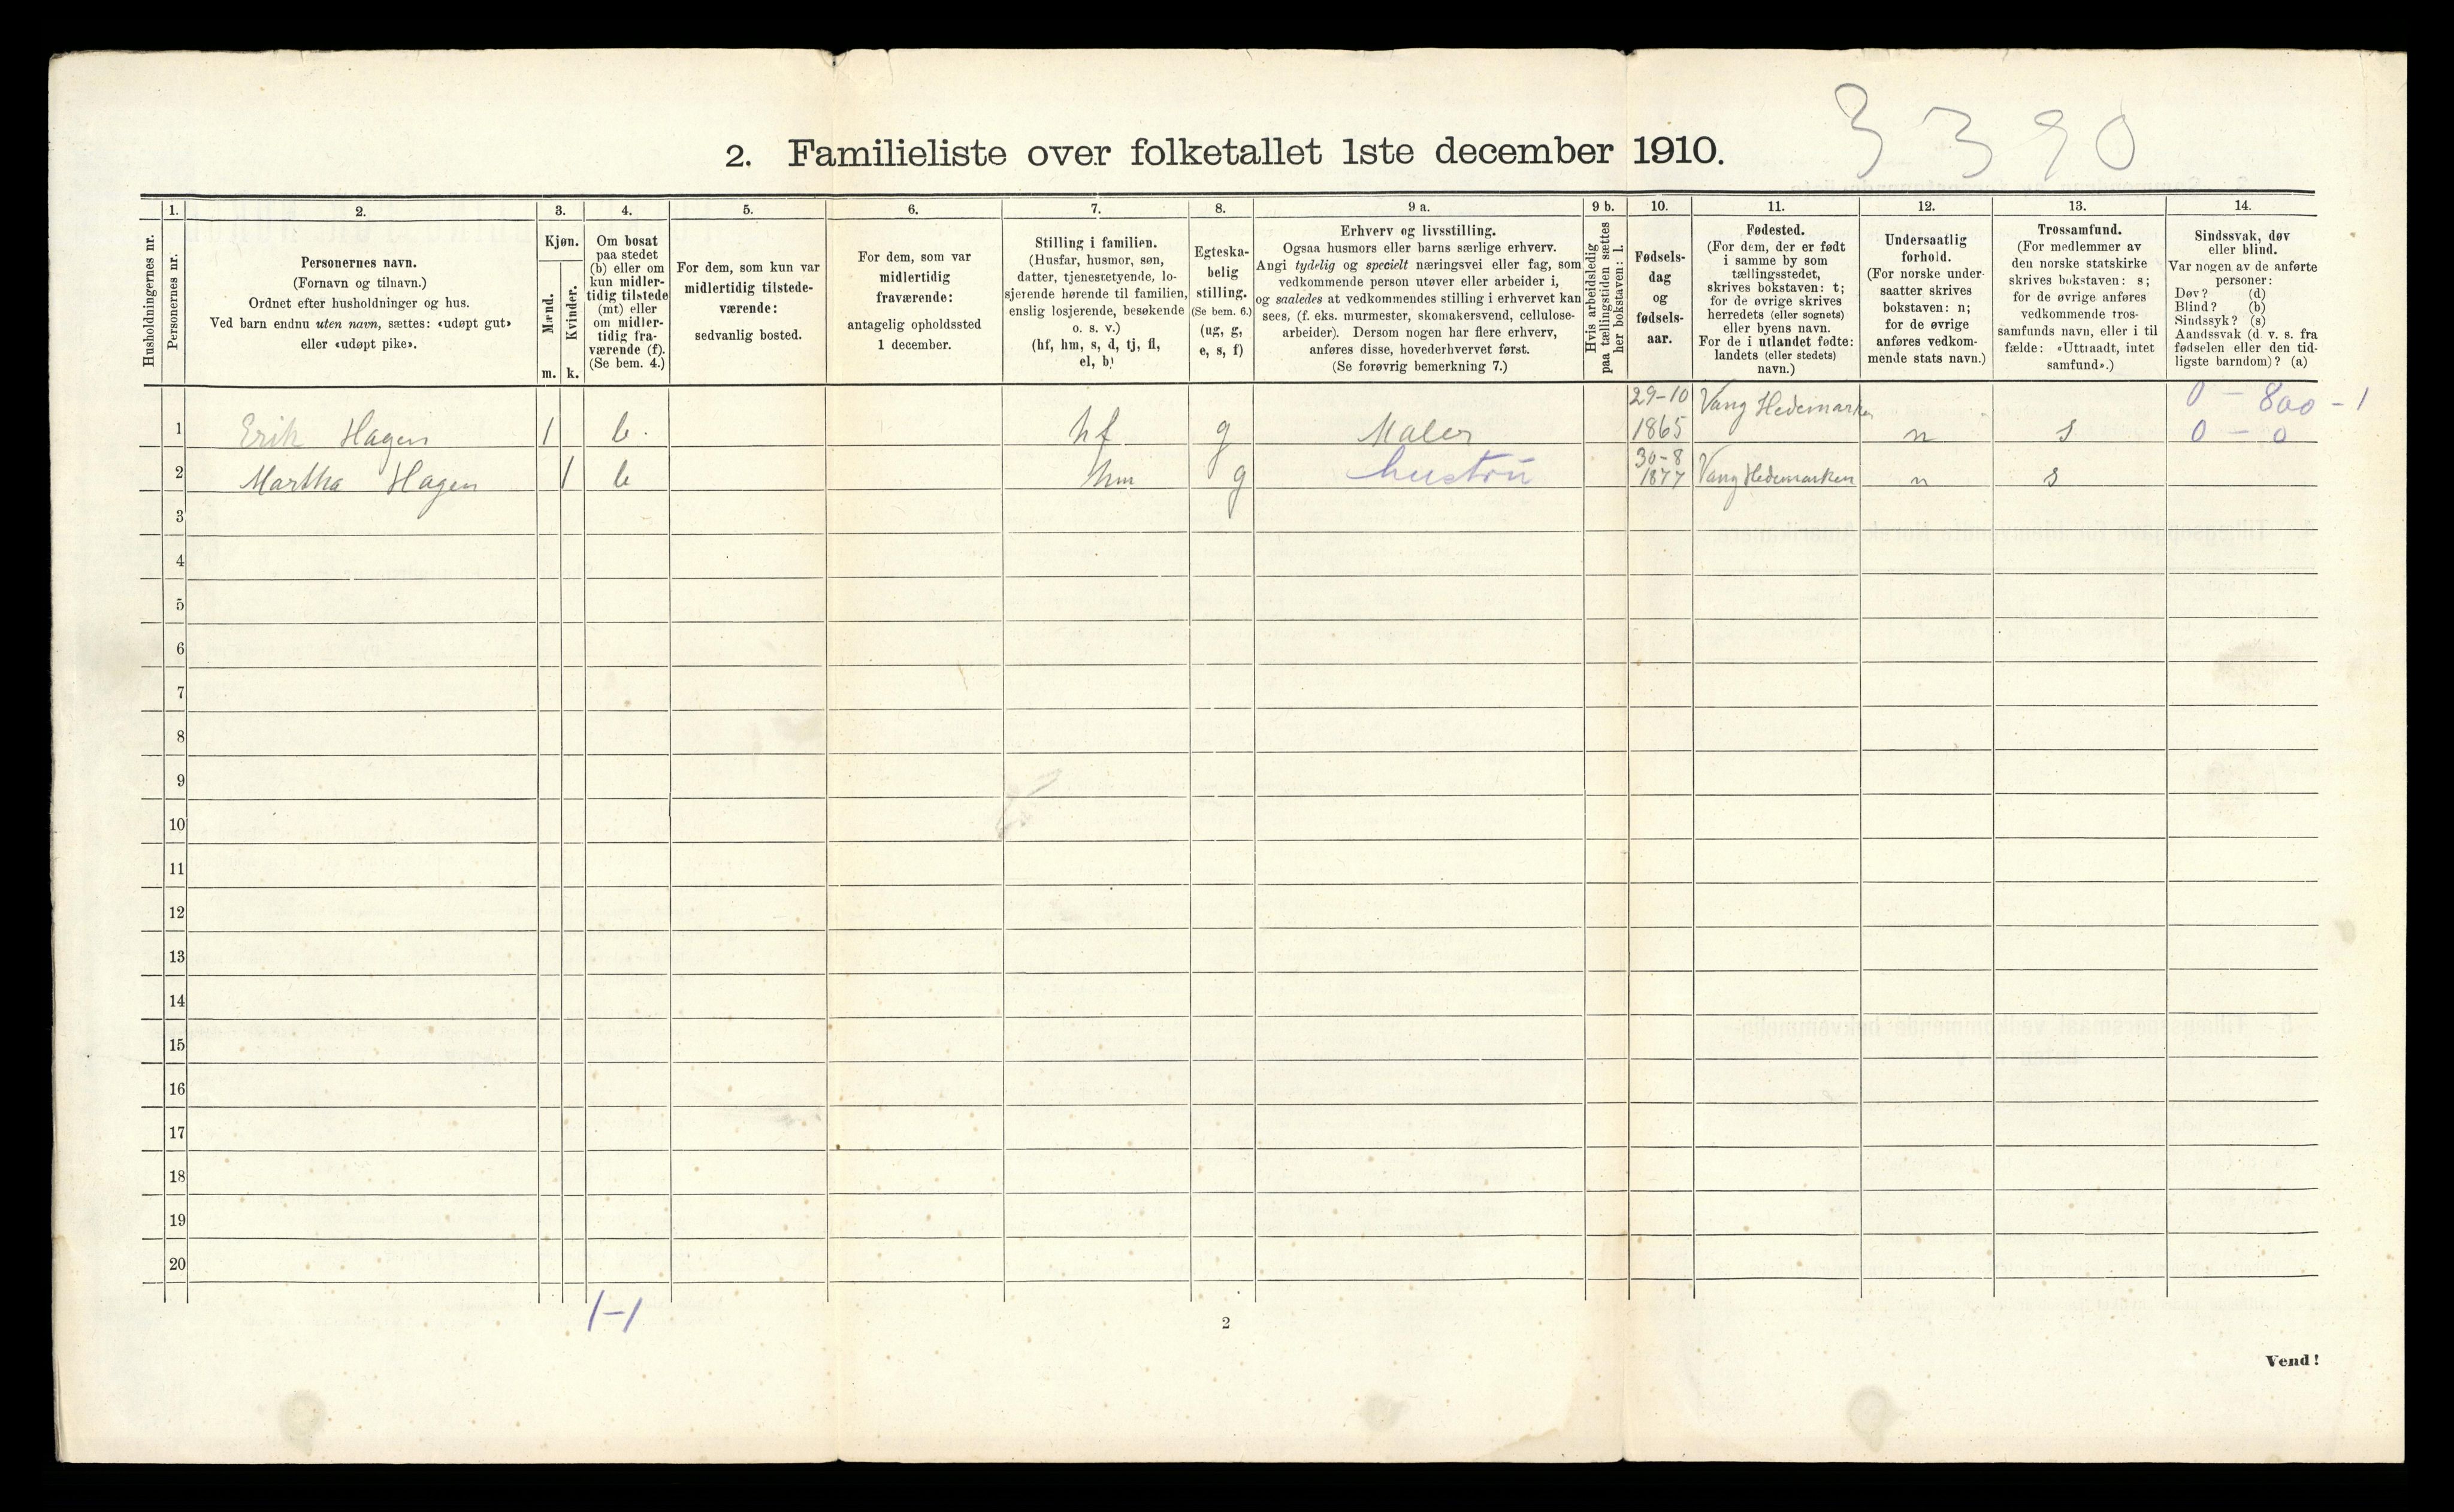 3390
2. Familieliste over folketallet 1ste december 1910.
1. 2. 3. 4. 5. 6. 7. 8. 9 a. 9 b. 10. 11. 12. 13. 14.
Husholdningernes nr.
Personernes nr.
Personernes navn.
(Fornavn og tilnavn.)
Ordnet efter husholdninger og hus.
Ved barn endnu uten navn, sættes: «udøpt gut»
eller «udøpt pike».
Kjøn.
Mænd.
Kvinder.
m. k.
Om bosat
paa stedet
(b) eller om
kun midler-
tidig tilstede
(mt) eller
om midler-
tidig fra-
værende (f).
(Se bem. 4.)
For dem, som kun var
midlertidig tilstede-
værende:
sedvanlig bosted.
For dem, som var
midlertidig
fraværende:
antagelig opholdssted
1 december.
Stilling i familien.
(Husfar, husmor, søn,
datter, tjenestetyende, lo-
sjerende hørende til familien,
enslig losjerende, besøkende
o. s. v.)
(hf, hm, s, d, tj, fl,
el, b)
Egteska-
belig
stilling.
(Se bem. 6.)
(ug, g,
e, s, f)
Erhverv og livsstilling.
Ogsaa husmors eller barns særlige erhverv.
Angi tydelig og specielt næringsvei eller fag, som
vedkommende person utøver eller arbeider i,
og saaledes at vedkommendes stilling i erhvervet kan
sees, (f. eks. murmester, skomakersvend, cellulose-
arbeider). Dersom nogen har flere erhverv,
anføres disse, hovederhvervet først.
(Se forøvrig bemerkning 7.)
Hvis arbeidsledig
paa tællingstiden sættes
her bokstaven: l.
Fødsels-
dag
og
fødsels-
aar.
Fødested.
(For dem, der er født
i samme by som
tællingsstedet,
skrives bokstaven: t;
for de øvrige skrives
herredets (eller sognets)
eller byens navn.
For de i utlandet fødte:
landets (eller stedets)
navn.)
Undersaatlig
forhold.
(For norske under-
saatter skrives
bokstaven: n;
for de øvrige
anføres vedkom-
mende stats navn.)
Trossamfund.
(For medlemmer av
den norske statskirke
skrives bokstaven: s;
for de øvrige anføres
vedkommende tros-
samfunds navn, eller i til
fælde: «Uttraadt, intet
samfund».)
Sindssvak, døv
eller blind.
Var nogen av de anførte
personer:
Døv? (d)
Blind? (b)
Sindssyk? (s)
Aandssvak (d. v. s. fra
fødselen eller den tid-
ligste barndom)? (a)
29-10 Vang Hedemarken 0 - 800 - 1
1 Erik Hagen 1 b. hf g Maler 1865 n s 0 - 0
30-8
2 Martha Hagen 1 b hm g hustru 1877 Vang Hedemarken n s
3
4
5
6
7
8
9
10
11
12
13
14
15
16
17
18
19
20
1-1
2
Vend!